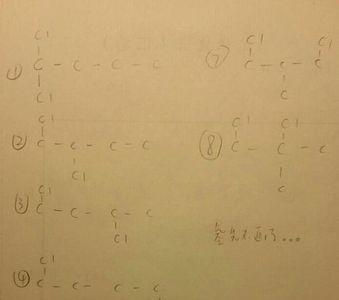 Cl
① C - C - C - C
Cl
Cl
② C - C - C - C
Cl
Cl
③ C - C - C - C
Cl
Cl
④ C - C - C - C
Cl Cl
⑦ C - C - C
C
Cl Cl
⑧ C - C - C
C